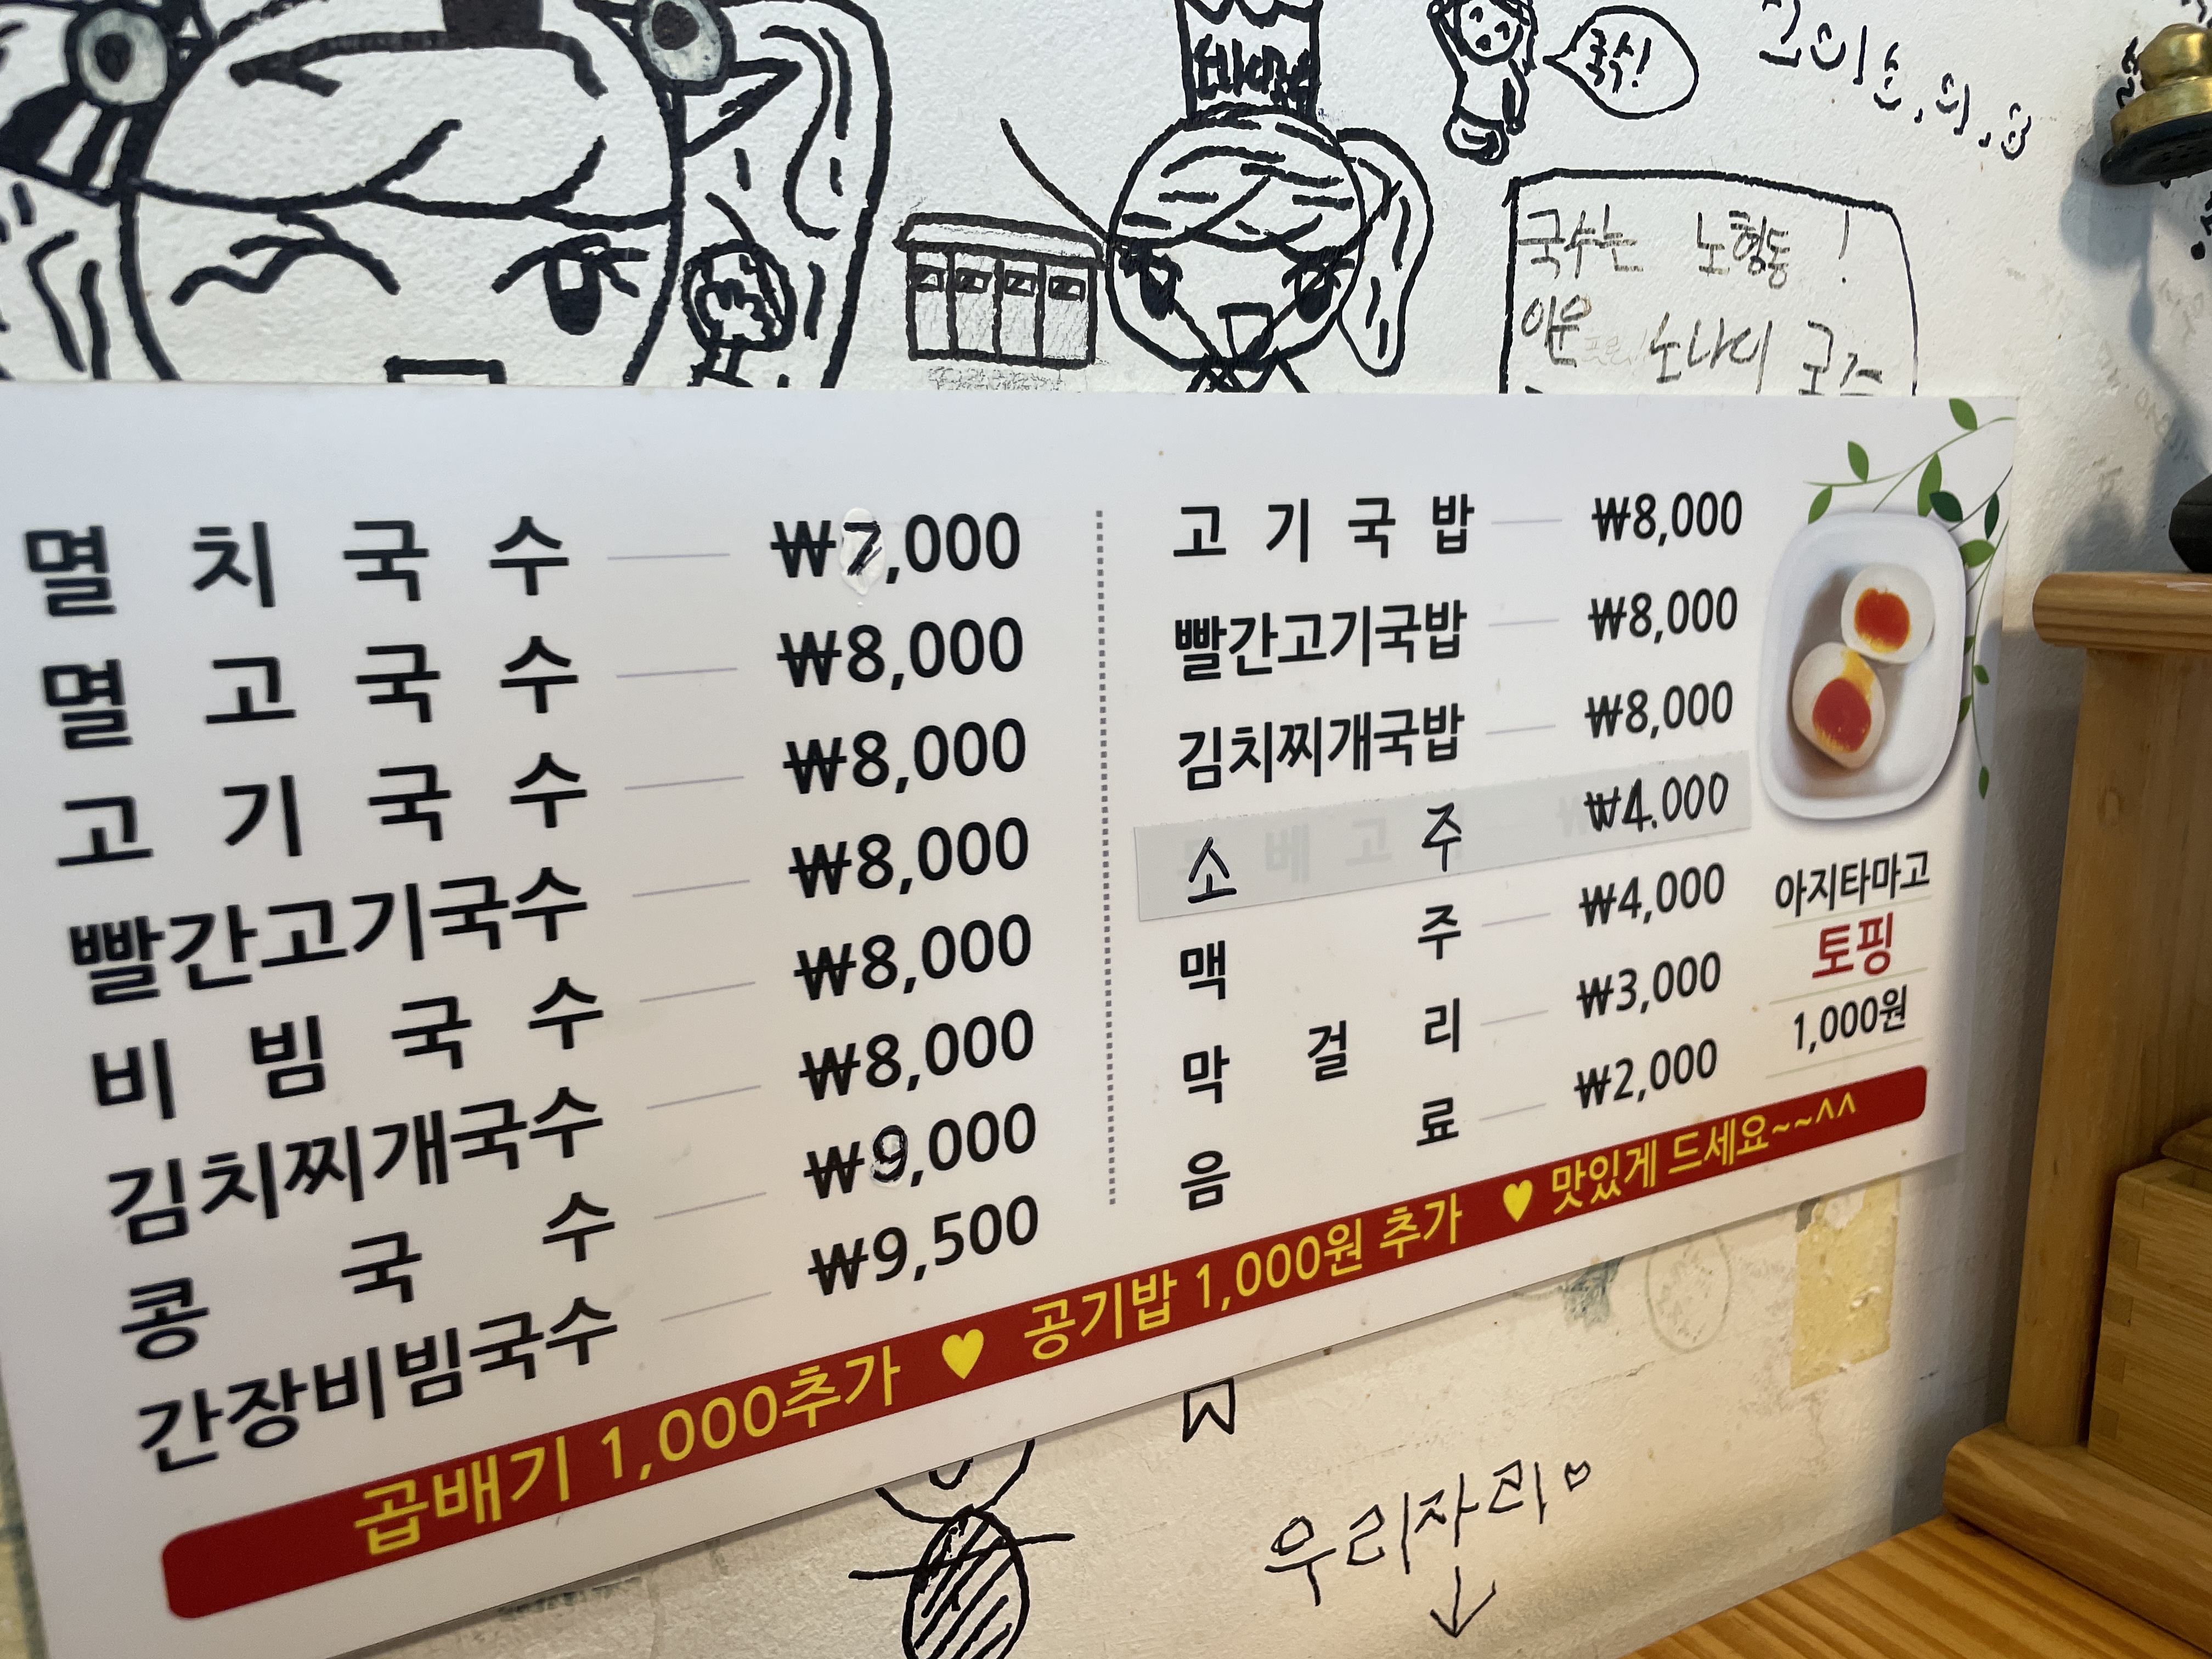 국시!
국수는 노형동!
멸치국수 ₩7,000
멸고국수 ₩8,000
고기국수 ₩8,000
빨간고기국수 ₩8,000
비빔국수 ₩8,000
김치찌개국수 ₩8,000
콩국수 ₩9,000
간장비빔국수 ₩9,500
고기국밥 ₩8,000
빨간고기국밥 ₩8,000
김치찌개국밥 ₩8,000
소주 ₩4.000
맥주 ₩4,000
막걸리 ₩3,000
음료 ₩2,000
아지타마고
토핑
1,000원
곱배기 1,000추가 ♥ 공기밥 1,000원 추가 ♥ 맛있게 드세요~~^^
우리자리